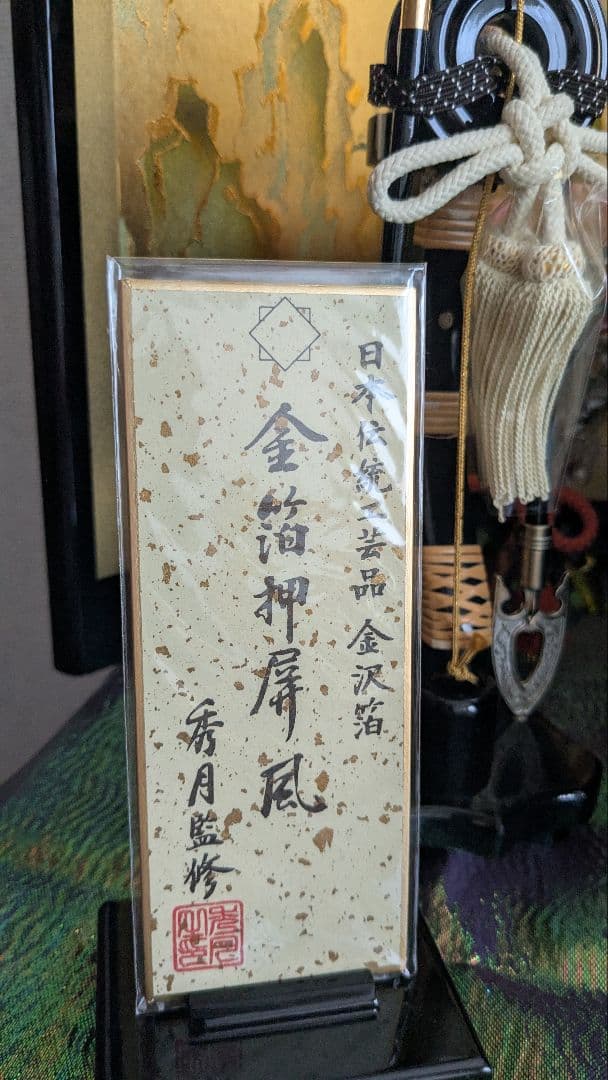 日本伝統工芸品 金沢箔
金箔押屏風
秀月監修